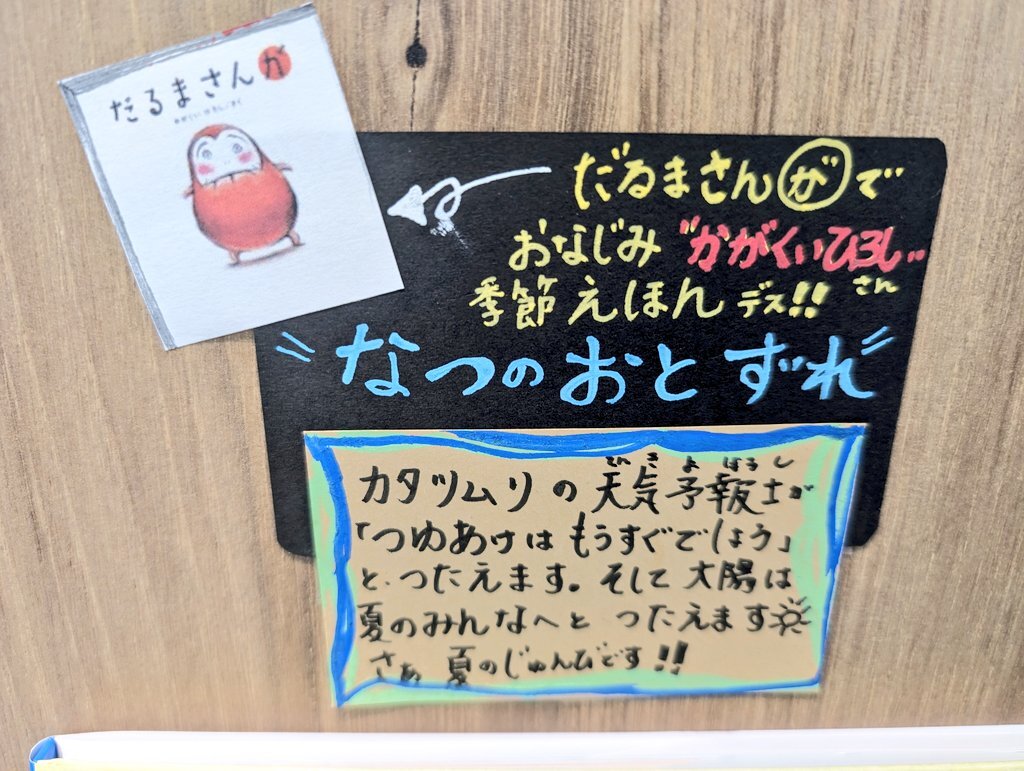 だるまさんが
かがくい ひろし さく
だるまさんがで
おなじみ"かがくいひろし"
さん
季節えほんデス!!
"なつのおとずれ"
てんきよほうし
カタツムリの天気予報士が
「つゆあけはもうすぐでしょう」
と、つたえます。そして太陽は
夏のみんなへと つたえます
さぁ 夏のじゅんびです!!